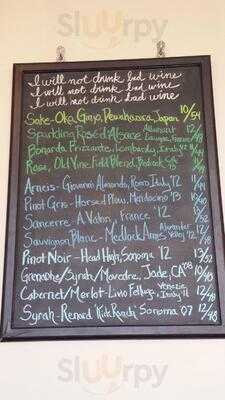 Sluurpy
I will not drink bad wine
I will not drink bad wine
I will not drink bad wine
Sake-Oka, Ginjo, Dewahazura, Japan 10/54
Sparkling Rosé d'Alsace 12
Bonarda Frizzante, Lombardy, Italy '12 11
Rosé, Old Vine Field Blend, Bedrock
Arneis - Giovanni Almondo, Roero, Italy '12 11
Pinot Gris - Horse & Plow, Mendocino '13
Sancerre A. Vatan, France '12
Sauvignon Blanc - Medlock Ames Alexander Valley '12 12/48
Pinot Noir - Head High, Sonoma '12 13/52
Grenache/Syrah/Movedre, Jade, CA '08 10/40
Cabernet/Merlot - Lino Venezie, Italy '11 12/48
Syrah - Renard "Kick Ranch" Sonoma '07 12/48
Sluurpy